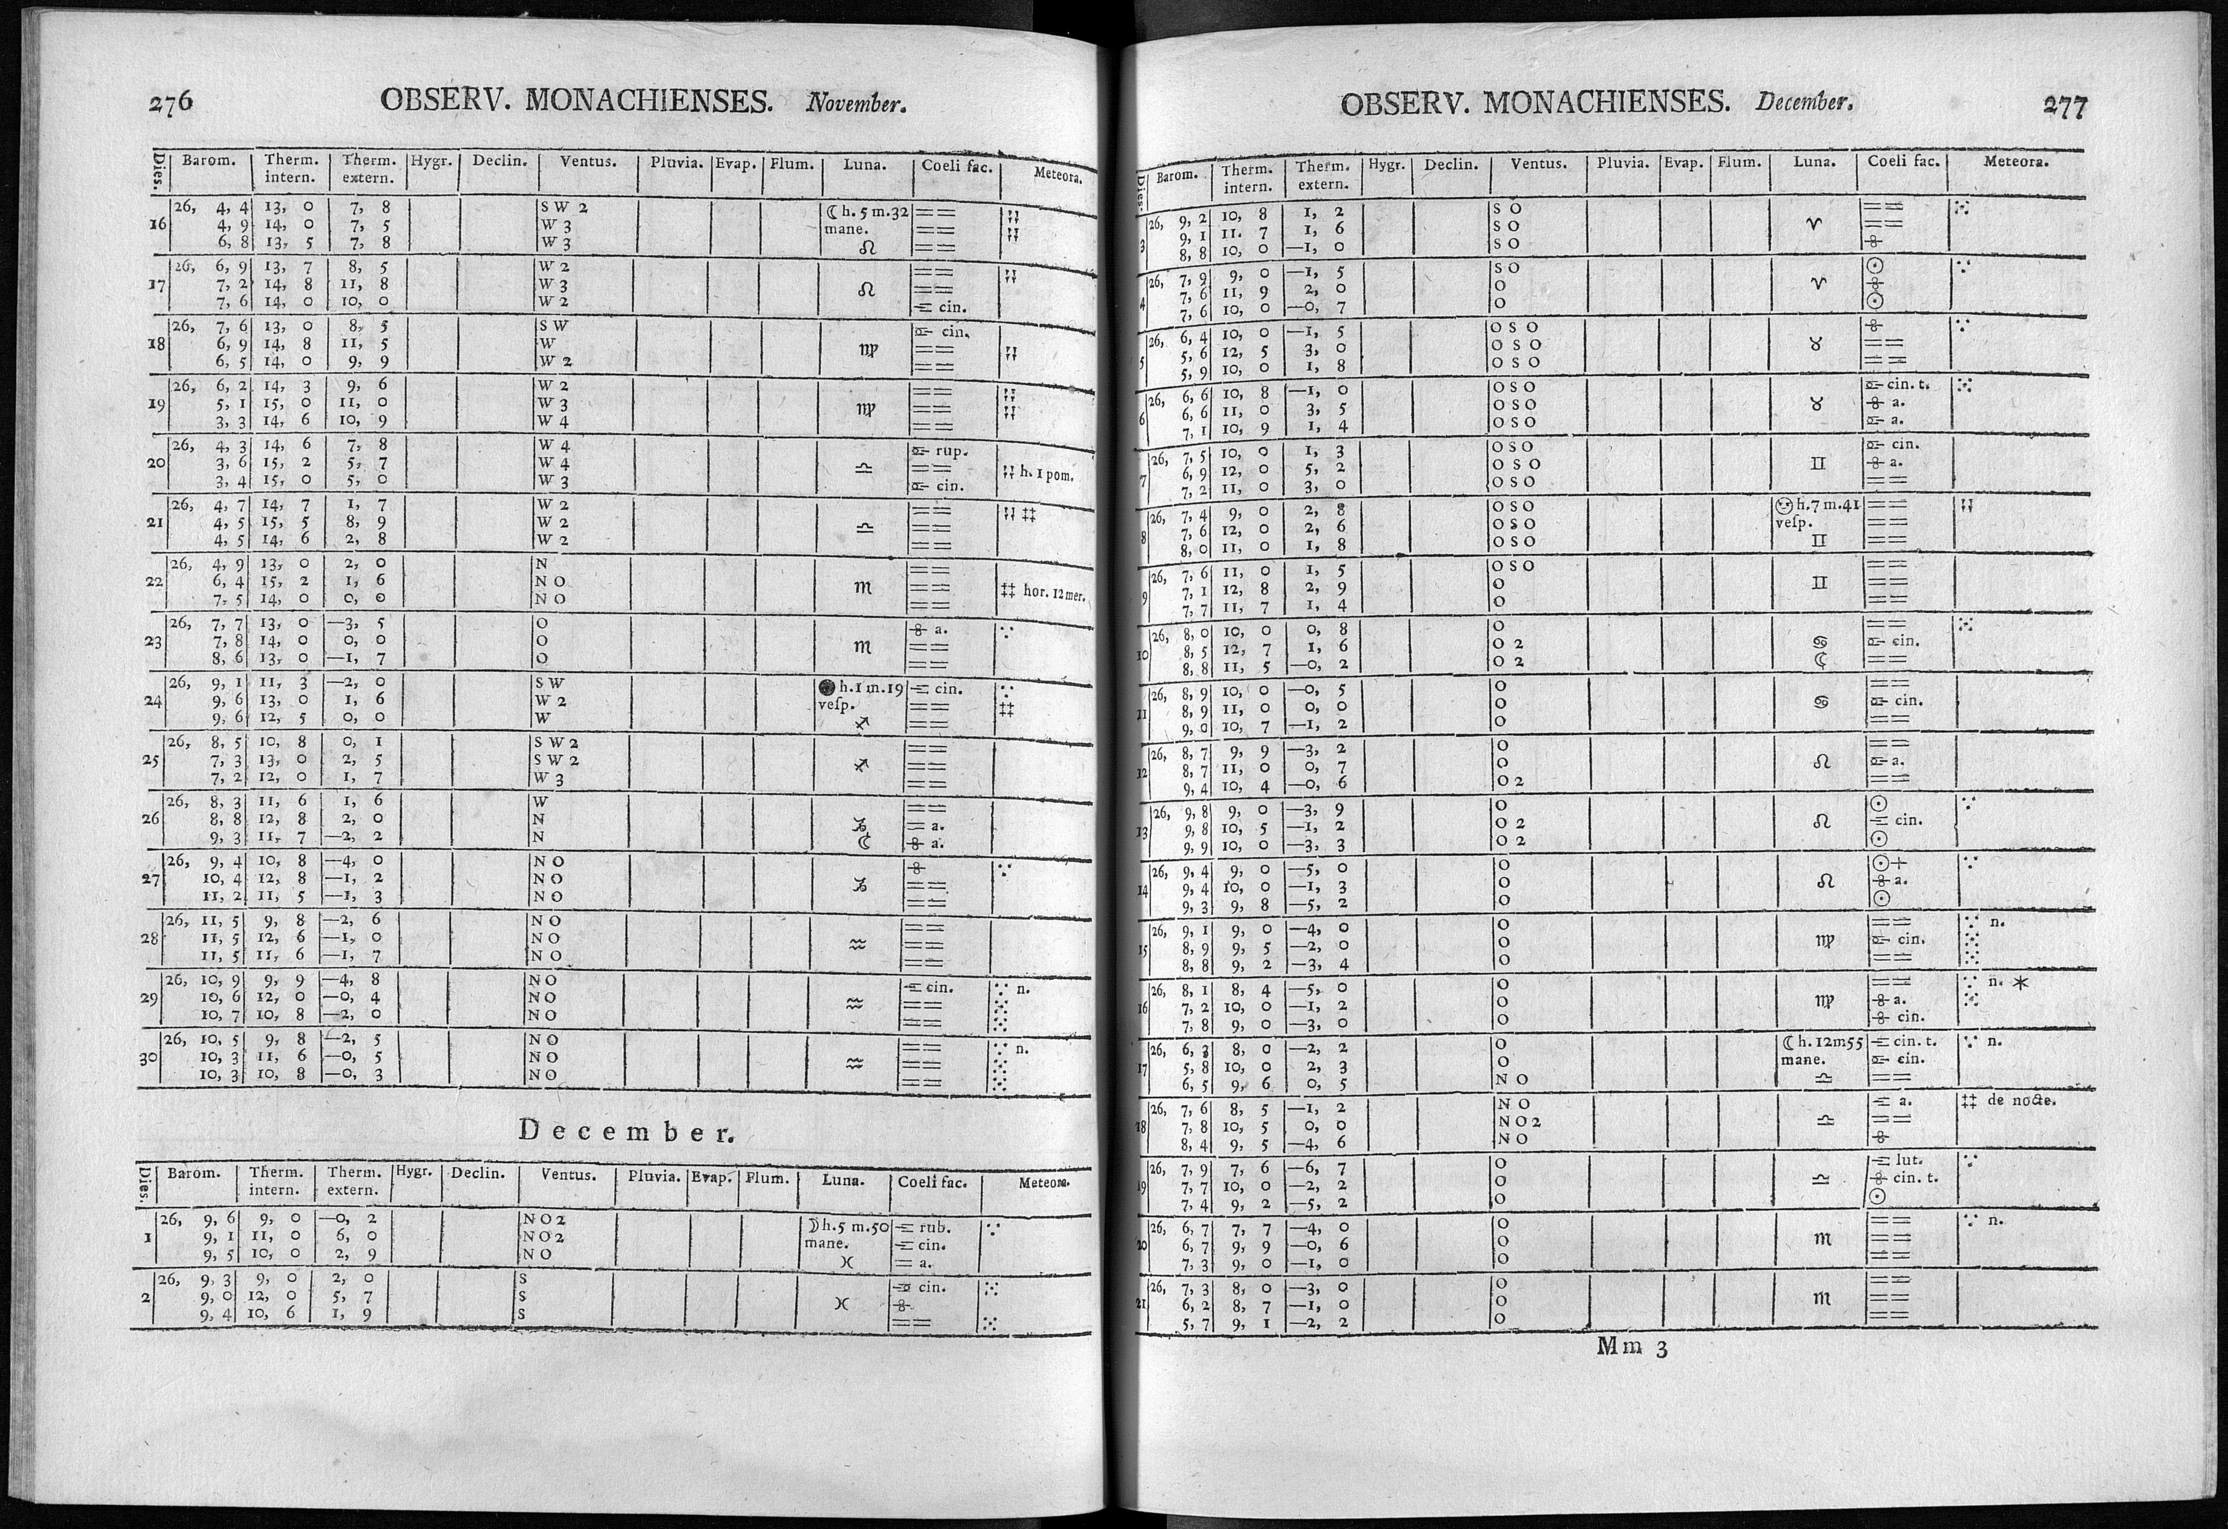 276 OBSERV. MONACHIENSES. November.
Dies. Barom. Therm. intern. Therm. extern. Hygr. Declin. Ventus. Pluvia. Evap. Flum. Luna. Coeli fac. Meteora.
16 26, 4, 4 13, 0 7, 8 S W 2 ☾ h. 5 m. 32 ==
4, 9 14, 0 7, 5 W 3 mane. ==
6, 8 13, 5 7, 8 W 3 ♌ ==
17 26, 6, 9 13, 7 8, 5 W 2 ==
7, 2 14, 8 11, 8 W 3 ♌ ==
7, 6 14, 0 10, 0 W 2 cin.
18 26, 7, 6 13, 0 8, 5 S W cin.
6, 9 14, 8 11, 5 W ♍ ==
6, 5 14, 0 9, 9 W 2 ==
19 26, 6, 2 14, 3 9, 6 W 2 ==
5, 1 15, 0 11, 0 W 3 ♍ ==
3, 3 14, 6 10, 9 W 4 ==
20 26, 4, 3 14, 6 7, 8 W 4 rup.
3, 6 15, 2 5, 7 W 4 ♎ == h. 1 pom.
3, 4 15, 0 5, 0 W 3 cin.
21 26, 4, 7 14, 7 1, 7 W 2 == ‡‡
4, 5 15, 5 8, 9 W 2 ♎ ==
4, 5 14, 6 2, 8 W 2 ==
22 26, 4, 9 13, 0 2, 0 N ==
6, 4 15, 2 1, 6 N O ♏ == ‡‡ hor. 12 mer.
7, 5 14, 0 0, 0 N O ==
23 26, 7, 7 13, 0 —3, 5 O a. ∵
7, 8 14, 0 0, 0 O ♏ ==
8, 6 13, 0 —1, 7 O ==
24 26, 9, 1 11, 3 —2, 0 S W ● h. 1 m. 19 cin. ∵
9, 6 13, 0 1, 6 W 2 veſp. == ‡‡
9, 6 12, 5 0, 0 W ♐ ==
25 26, 8, 5 10, 8 0, 1 S W 2 ==
7, 3 13, 0 2, 5 S W 2 ♐ ==
7, 2 12, 0 1, 7 W 3 ==
26 26, 8, 3 11, 6 1, 6 W ==
8, 8 12, 8 2, 0 N ♑ = a.
9, 3 11, 7 —2, 2 N ☾ a.
27 26, 9, 4 10, 8 —4, 0 N O ∵
10, 4 12, 8 —1, 2 N O ♑ ==
11, 2 11, 5 —1, 3 N O ==
28 26, 11, 5 9, 8 —2, 6 N O ==
11, 5 12, 6 —1, 0 N O ♒ ==
11, 5 11, 6 —1, 7 N O ==
29 26, 10, 9 9, 9 —4, 8 N O cin. ∵ n.
10, 6 12, 0 —0, 4 N O ♒ ==
10, 7 10, 8 —2, 0 N O ==
30 26, 10, 5 9, 8 —2, 5 N O == ∵ n.
10, 3 11, 6 —0, 5 N O ♒ ==
10, 3 10, 8 —0, 3 N O ==
December.
Dies. Barom. Therm. intern. Therm. extern. Hygr. Declin. Ventus. Pluvia. Evap. Flum. Luna. Coeli fac. Meteora.
1 26, 9, 6 9, 0 —0, 2 N O 2 ☽ h. 5 m. 50 rub. ∵
9, 1 11, 0 6, 0 N O 2 mane. cin.
9, 5 10, 0 2, 9 N O ♓ = a.
2 26, 9, 3 9, 0 2, 0 S cin.
9, 0 12, 0 5, 7 S ♓
9, 4 10, 6 1, 9 S ==
OBSERV. MONACHIENSES. December. 277
Dies. Barom. Therm. intern. Therm. extern. Hygr. Declin. Ventus. Pluvia. Evap. Flum. Luna. Coeli fac. Meteora.
3 26, 9, 2 10, 8 1, 2 S O ==
9, 1 11. 7 1, 6 S O ♈ ==
8, 8 10, 0 —1, 0 S O
4 26, 7, 9 9, 0 —1, 5 S O ☉ ∵
7, 6 11, 9 2, 0 O ♈
7, 6 10, 0 —0, 7 O ☉
5 26, 6, 4 10, 0 —1, 5 O S O ∵
5, 6 12, 5 3, 0 O S O ♉ ==
5, 9 10, 0 1, 8 O S O ==
6 26, 6, 6 10, 8 —1, 0 O S O cin. t.
6, 6 11, 0 3, 5 O S O ♉ a.
7, 1 10, 9 1, 4 O S O a.
7 26, 7, 5 10, 0 1, 3 O S O cin.
6, 9 12, 0 5, 2 O S O ♊ a.
7, 2 11, 0 3, 0 O S O ==
8 26, 7, 4 9, 0 2, 8 O S O h. 7 m. 41 ==
7, 6 12, 0 2, 6 O S O veſp. ==
8, 0 11, 0 1, 8 O S O ♊ ==
9 26, 7, 6 11, 0 1, 5 O S O ==
7, 1 12, 8 2, 9 O ♊ ==
7, 7 11, 7 1, 4 O ==
10 26, 8, 0 10, 0 0, 8 O ==
8, 5 12, 7 1, 6 O 2 ♋ cin.
8, 8 11, 5 —0, 2 O 2 ☾ ==
11 26, 8, 9 10, 0 —0, 5 O ==
8, 9 11, 0 0, 0 O ♋ cin.
9, 0 10, 7 —1, 2 O ==
12 26, 8, 7 9, 9 —3, 2 O ==
8, 7 11, 0 0, 7 O ♌ a.
9, 4 10, 4 —0, 6 O 2 ==
13 26, 9, 8 9, 0 —3, 9 O ☉ ∵
9, 8 10, 5 —1, 2 O 2 ♌ cin.
9, 9 10, 0 —3, 3 O 2 ☉
14 26, 9, 4 9, 0 —5, 0 O ☉+ ∵
9, 4 10, 0 —1, 3 O ♌ a.
9, 3 9, 8 —5, 2 O ☉
15 26, 9, 1 9, 0 —4, 0 O == ∵ n.
8, 9 9, 5 —2, 0 O ♍ cin.
8, 8 9, 2 —3, 4 O ==
16 26, 8, 1 8, 4 —5, 0 O == ∵ n. *
7, 2 10, 0 —1, 2 O ♍ a.
7, 8 9, 0 —3, 0 O cin.
17 26, 6, 3 8, 0 —2, 2 O ☾ h. 12 m 55 cin. t. ∵ n.
5, 8 10, 0 2, 3 O mane. cin.
6, 5 9, 6 0, 5 N O ♎ ==
18 26, 7, 6 8, 5 —1, 2 N O a. ‡‡ de nocte.
7, 8 10, 5 0, 0 N O 2 ♎ ==
8, 4 9, 5 —4, 6 N O
19 26, 7, 9 7, 6 —6, 7 O lut. ∵
7, 7 10, 0 —2, 2 O ♎ cin. t.
7, 4 9, 2 —5, 2 O ☉
20 26, 6, 7 7, 7 —4, 0 O == ∵ n.
6, 7 9, 9 —0, 6 O ♏ ==
7, 3 9, 0 —1, 0 O ==
21 26, 7, 3 8, 0 —3, 0 O ==
6, 2 8, 7 —1, 0 O ♏ ==
5, 7 9, 1 —2, 2 O ==
Mm 3